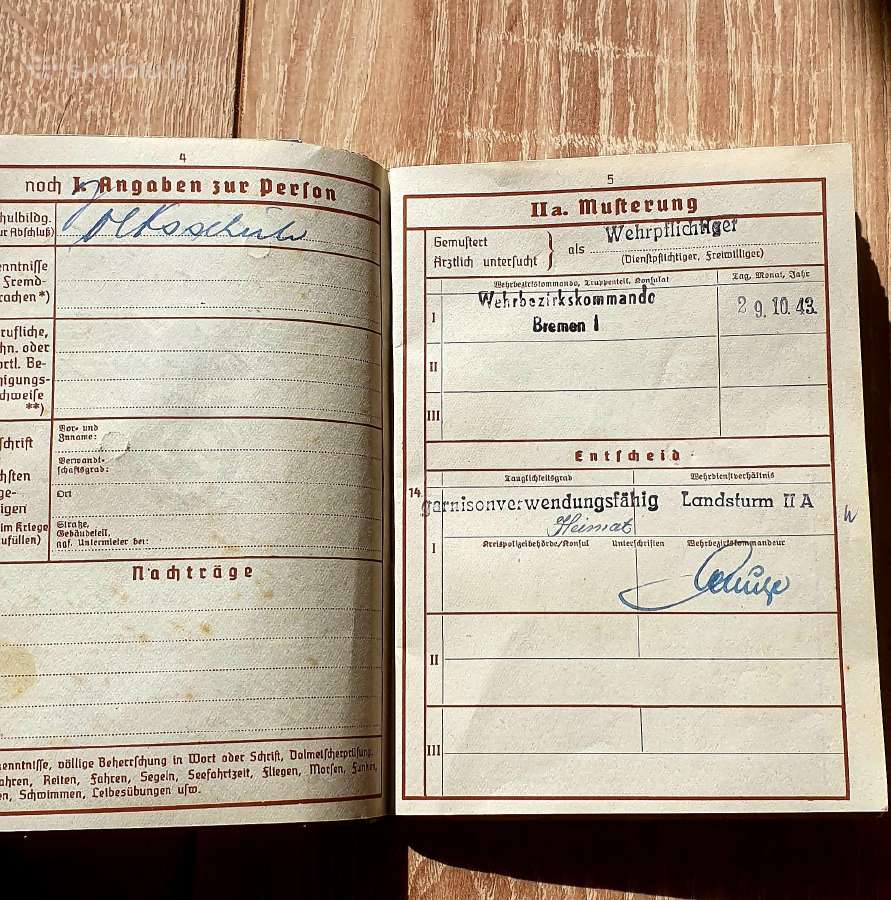 4
noch I. Angaben zur Person
chulbildg.
ur Abschluß)
Volksschule
enntnisse
Fremd-
rachen *)
rufliche,
hn. oder
ortl. Be-
higungs-
chweise
**)
schrift
chsten
ge-
igen
im Kriege
ufüllen)
Vor- und
Zuname:
Verwandt-
schaftsgrad:
Ort
Straße,
Gebäudeteil,
ggf. Untermieter bei:
Nachträge
enntnisse, völlige Beherrschung in Wort oder Schrift, Dolmetscherprüfung.
ahren, Reiten, Fahren, Segeln, Seefahrtzeit, Fliegen, Morsen, Funken,
en, Schwimmen, Leibesübungen usw.
5
IIa. Musterung
Gemustert
Ärztlich untersucht } als Wehrpflichtiger
(Dienstpflichtiger, Freiwilliger)
Wehrbezirkskommando, Truppenteil, Konsulat Tag, Monat, Jahr
I Wehrbezirkskommando
Bremen I 29.10.43.
II
III
Entscheid
Tauglichkeitsgrad Wehrdienstverhältnis
14 garnisonverwendungsfähig Landsturm II A
Heimat
I Kreispolizeibehörde/Konsul Unterschriften Wehrbezirkskommandeur
II
III